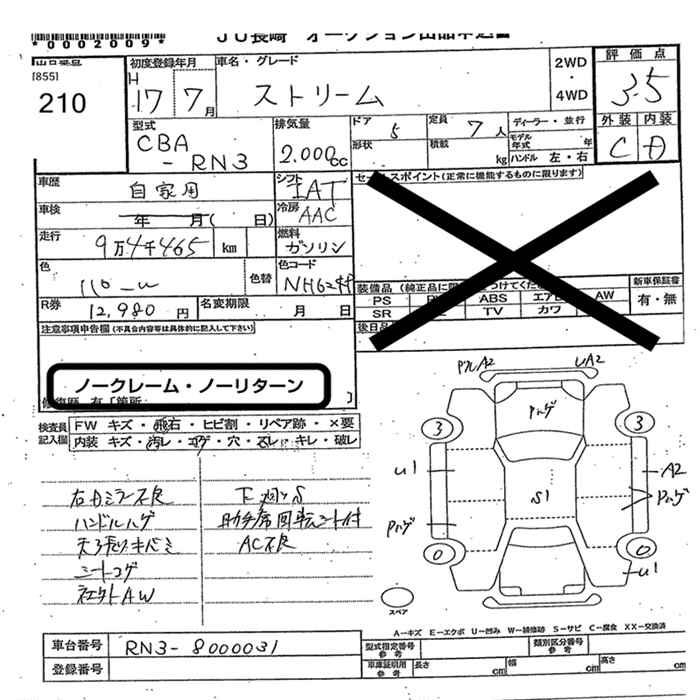 JU長崎 オークション出品申込書
*0002009*
[855]
210
初度登録年月
車名・グレード
2WD
・
4WD
評価点
H
17 7月
ストリーム
3.5
型式
排気量
ドア 5
定員 7人
ディーラー・並行
外装 内装
CBA
-RN3
2.000cc
形状
積載 kg
モデル年式 年
ハンドル 左・右
C D
車歴
自家用
シフト
IAT
セールスポイント(正常に機能するものに限ります)
車検
年 月( 日)
冷房
AAC
走行
9万4千465 km
燃料
ガソリン
色
パール
色替
色コード
NH624P
装備品
新車保証書
PS ABS エアB AW
有・無
SR TV カワ
R券
12,980円
名変期限
月 日
後日品
注意事項申告欄(不具合内容等は具体的に記入して下さい)
ノークレーム・ノーリターン
修復歴 有[箇所 ]
検査員
記入欄
FW キズ・飛石・ヒビ割・リペア跡・×要
内装 キズ・汚レ・コゲ・穴・スレ・キレ・破レ
右ドアミラー不良
下廻りS
ハンドルハゲ
助手席回転シート付
天張りキバミ
AC不良
シートコゲ
社外AW
PハゲA2
UA2
Pハゲ
3
3
U1
A2
S1
Pハゲ
Pハゲ
0
0
U1
スペア
A-キズ E-エクボ U-凹み W-補修跡 S-サビ C-腐食 XX-交換済
車台番号
RN3-8000031
型式指定番号
参考
類別区分番号
参考
登録番号
車庫証明用
参考
長さ cm
幅 cm
高さ cm